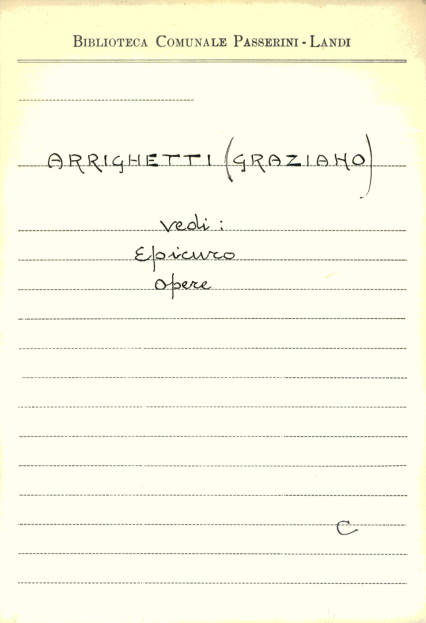 BIBLIOTECA COMUNALE PASSERINI - LANDI
ARRIGHETTI (GRAZIANO)
vedi :
Epicuro
Opere
C